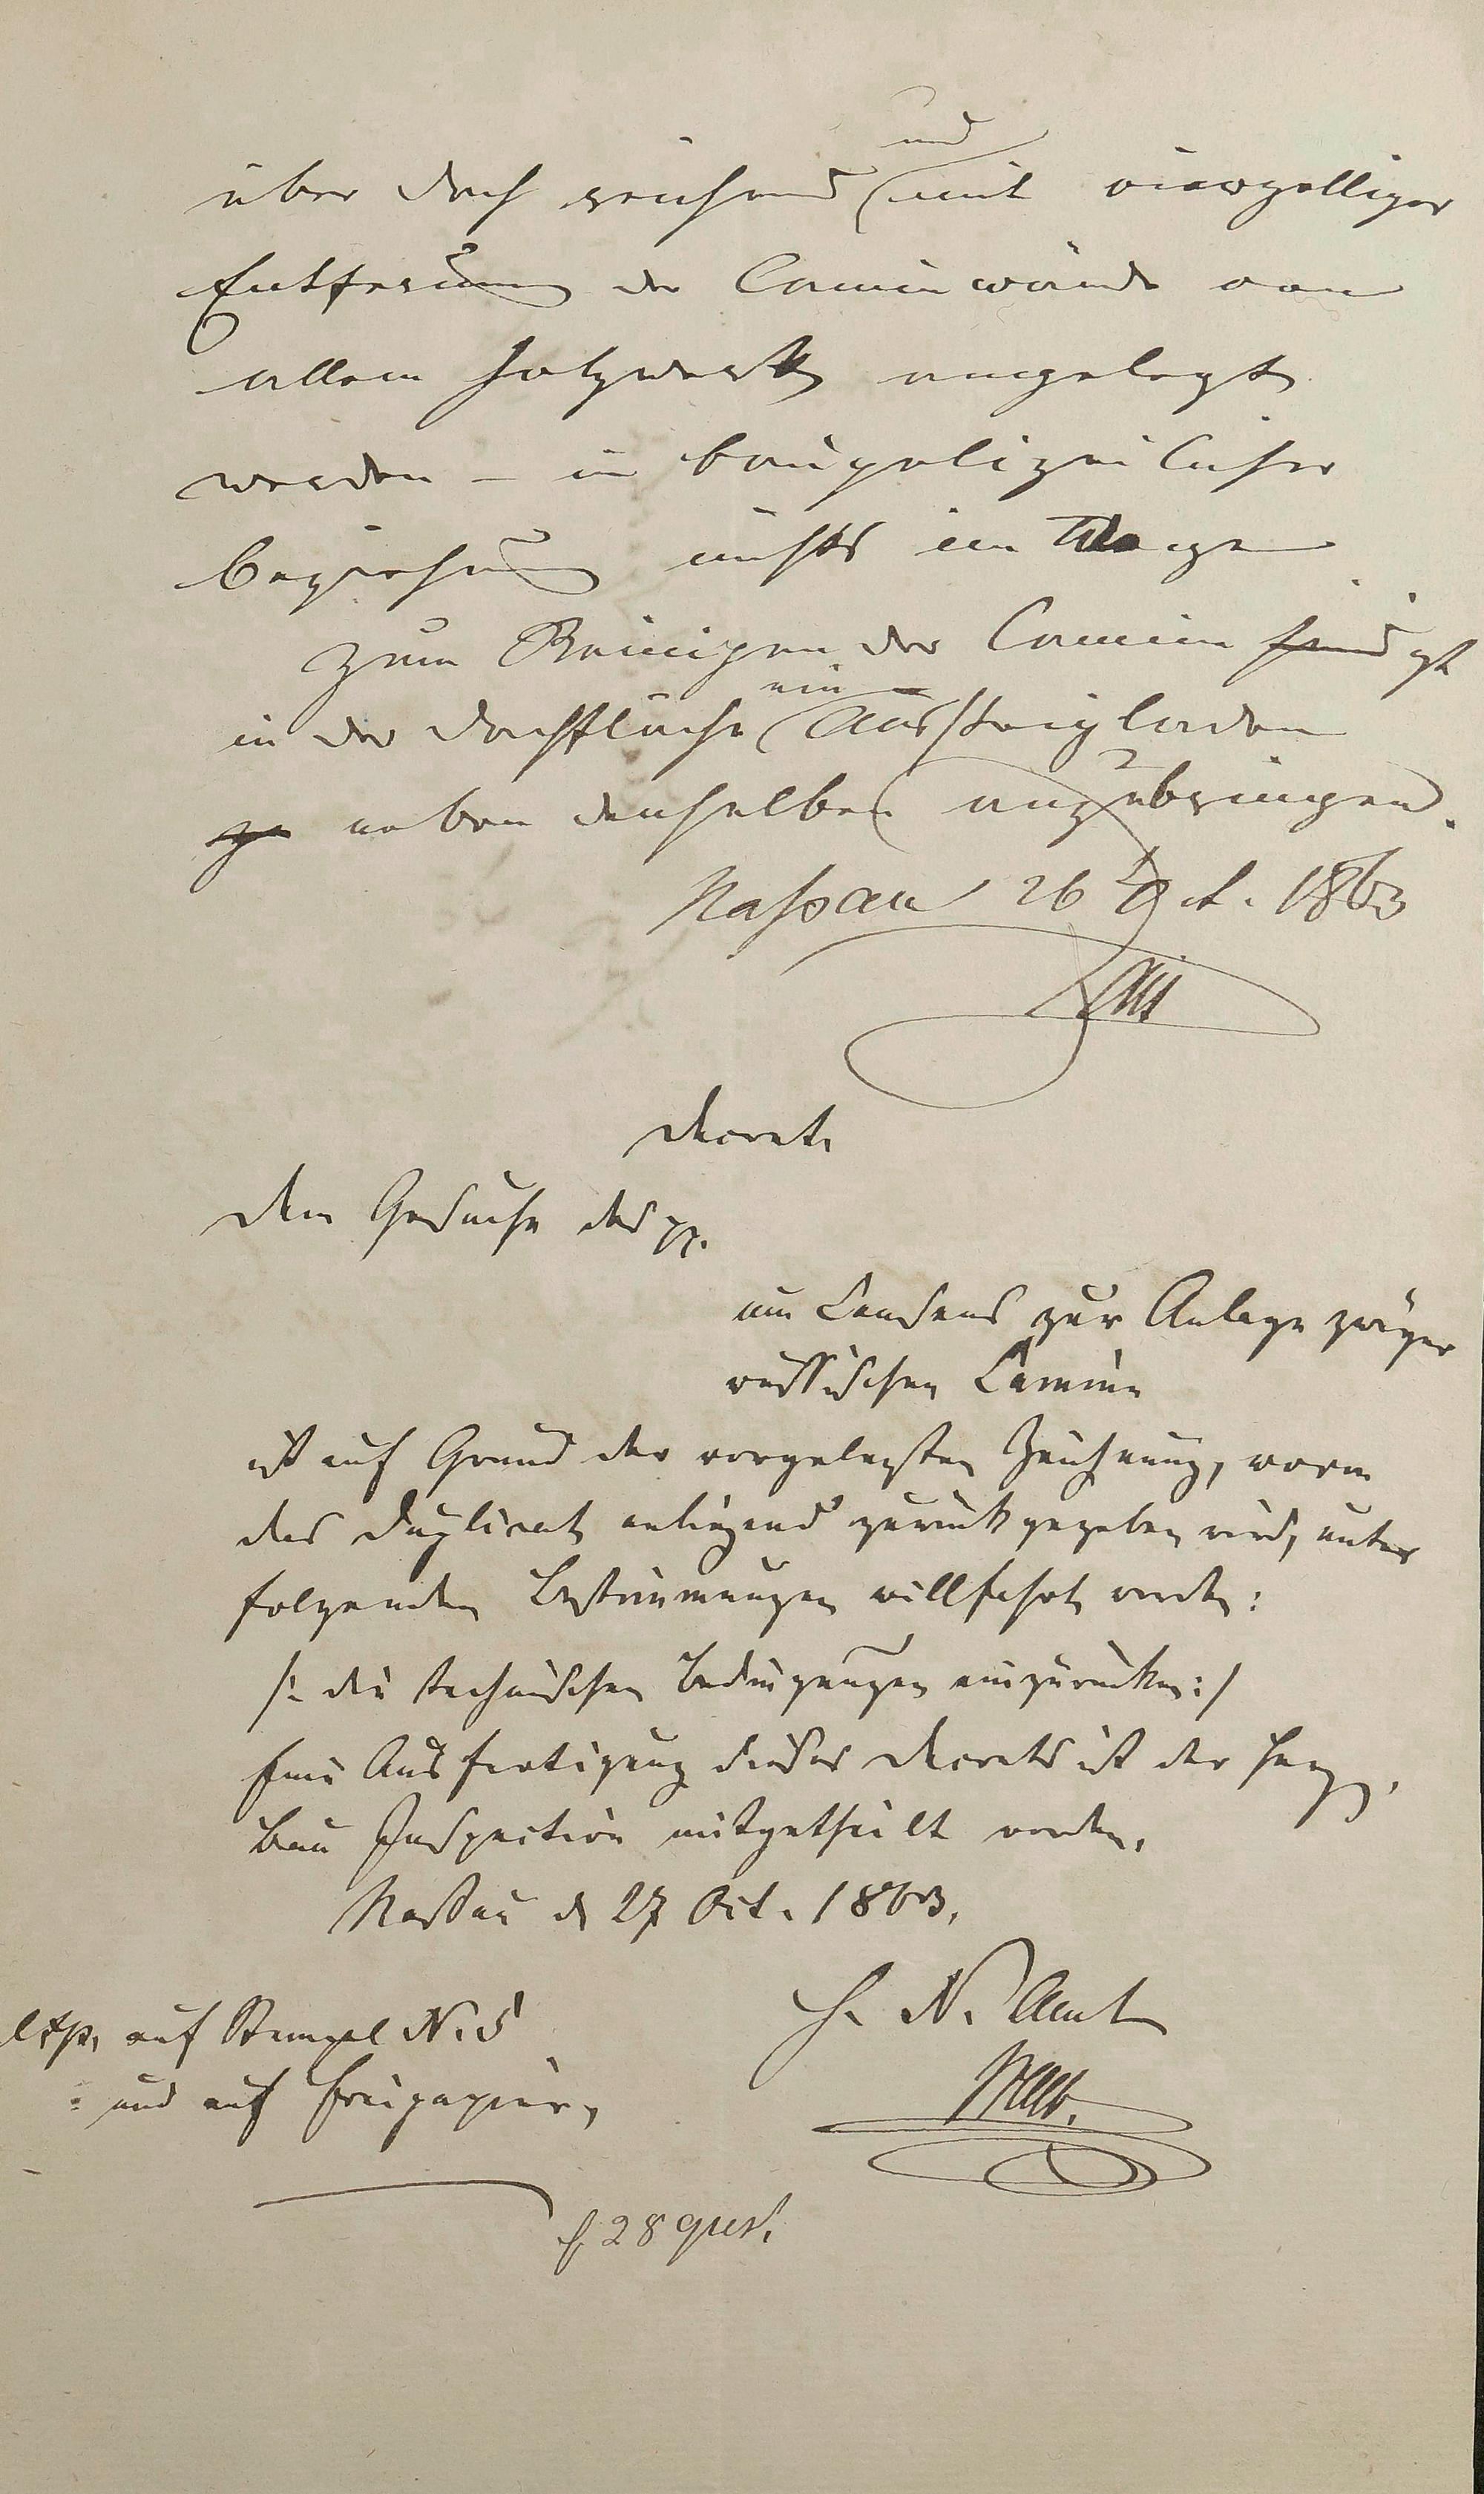 über Dach reichend und mit vierzolliger
Entfernung der Caminwände von
allem Holzwerk angelegt
werden – in baupolizeilicher
Beziehung nichts im Wege
Zum Reinigen der Camine sind ist
in der Dachfläche ein Aussteigladen
zu neben denselben anzubringen.
Nassau 26 Oct. 1863
Decret.
Dem Gesuche des pp.
um Consens zur Anlage zweyer
russischen Camine
ist auf Grund der vorgelegten Zeichnung, wovon
das Duplicat anliegend zurückgegeben wird, unter
folgenden Bestimmungen willfahrt worden:
/: die technischen Bedingungen einzurücken :/
Eine Ausfertigung dieses Decrets ist der Herzgl.
Bau Inspection mitgetheilt worden.
Nassau d 27 Oct. 1863.
H. N. Amt
Exp. auf Stempel N. 5
und auf Freipapier,
28